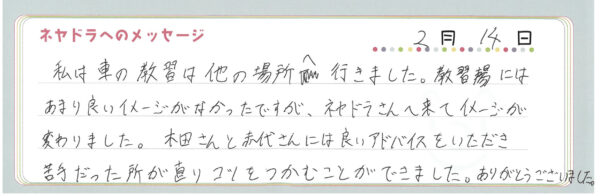 ネヤドラへのメッセージ
2月 14日
私は車の教習は他の場所へ行きました。教習場には
あまり良いイメージがなかったですが、ネヤドラさんへ来てイメージが
変わりました。本田さんと赤代さんには良いアドバイスをいただき
苦手だった所が直りコツをつかむことができました。ありがとうございました。